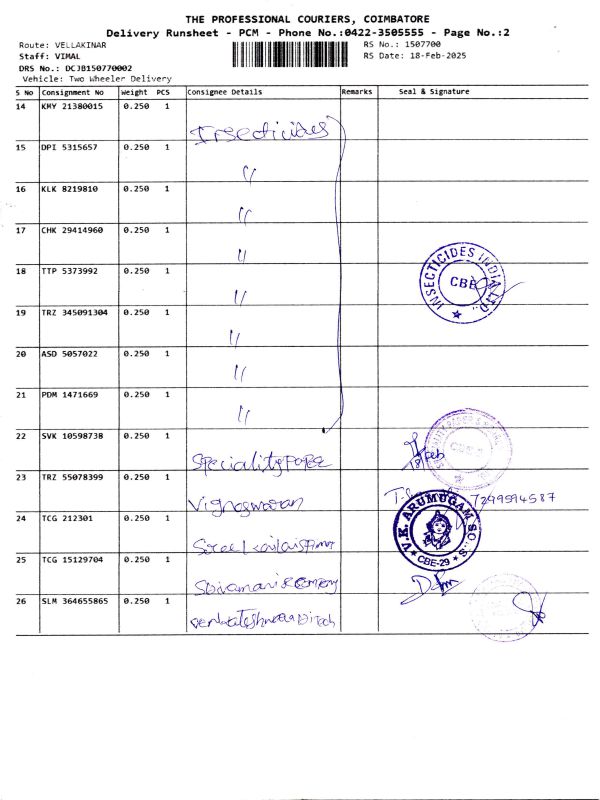 THE PROFESSIONAL COURIERS, COIMBATORE
Delivery Runsheet - PCM - Phone No.:0422-3505555 - Page No.:2
Route: VELLAKINAR
RS No.: 1507700
Staff: VIMAL
RS Date: 18-Feb-2025
DRS No.: DCJB150770002
Vehicle: Two Wheeler Delivery
S No Consignment No Weight PCS Consignee Details Remarks Seal & Signature
14 KMY 21380015 0.250 1
Insecticides
15 DPI 5315657 0.250 1
"
16 KLK 8219810 0.250 1
"
17 CHK 29414960 0.250 1
"
INSECTICIDES INDIA LTD.
CBE
18 TTP 5373992 0.250 1
"
19 TRZ 345091304 0.250 1
"
20 ASD 5057022 0.250 1
"
21 PDM 1471669 0.250 1
"
22 SVK 10598738 0.250 1
Speciality Paper
18 Feb
23 TRZ 55078399 0.250 1
Vignaswaran
7299594587
24 TCG 212301 0.250 1
V.K. ARUMUGAM SONS
CBE-29
25 TCG 15129704 0.250 1
Sivamani & Company
26 SLM 364655865 0.250 1